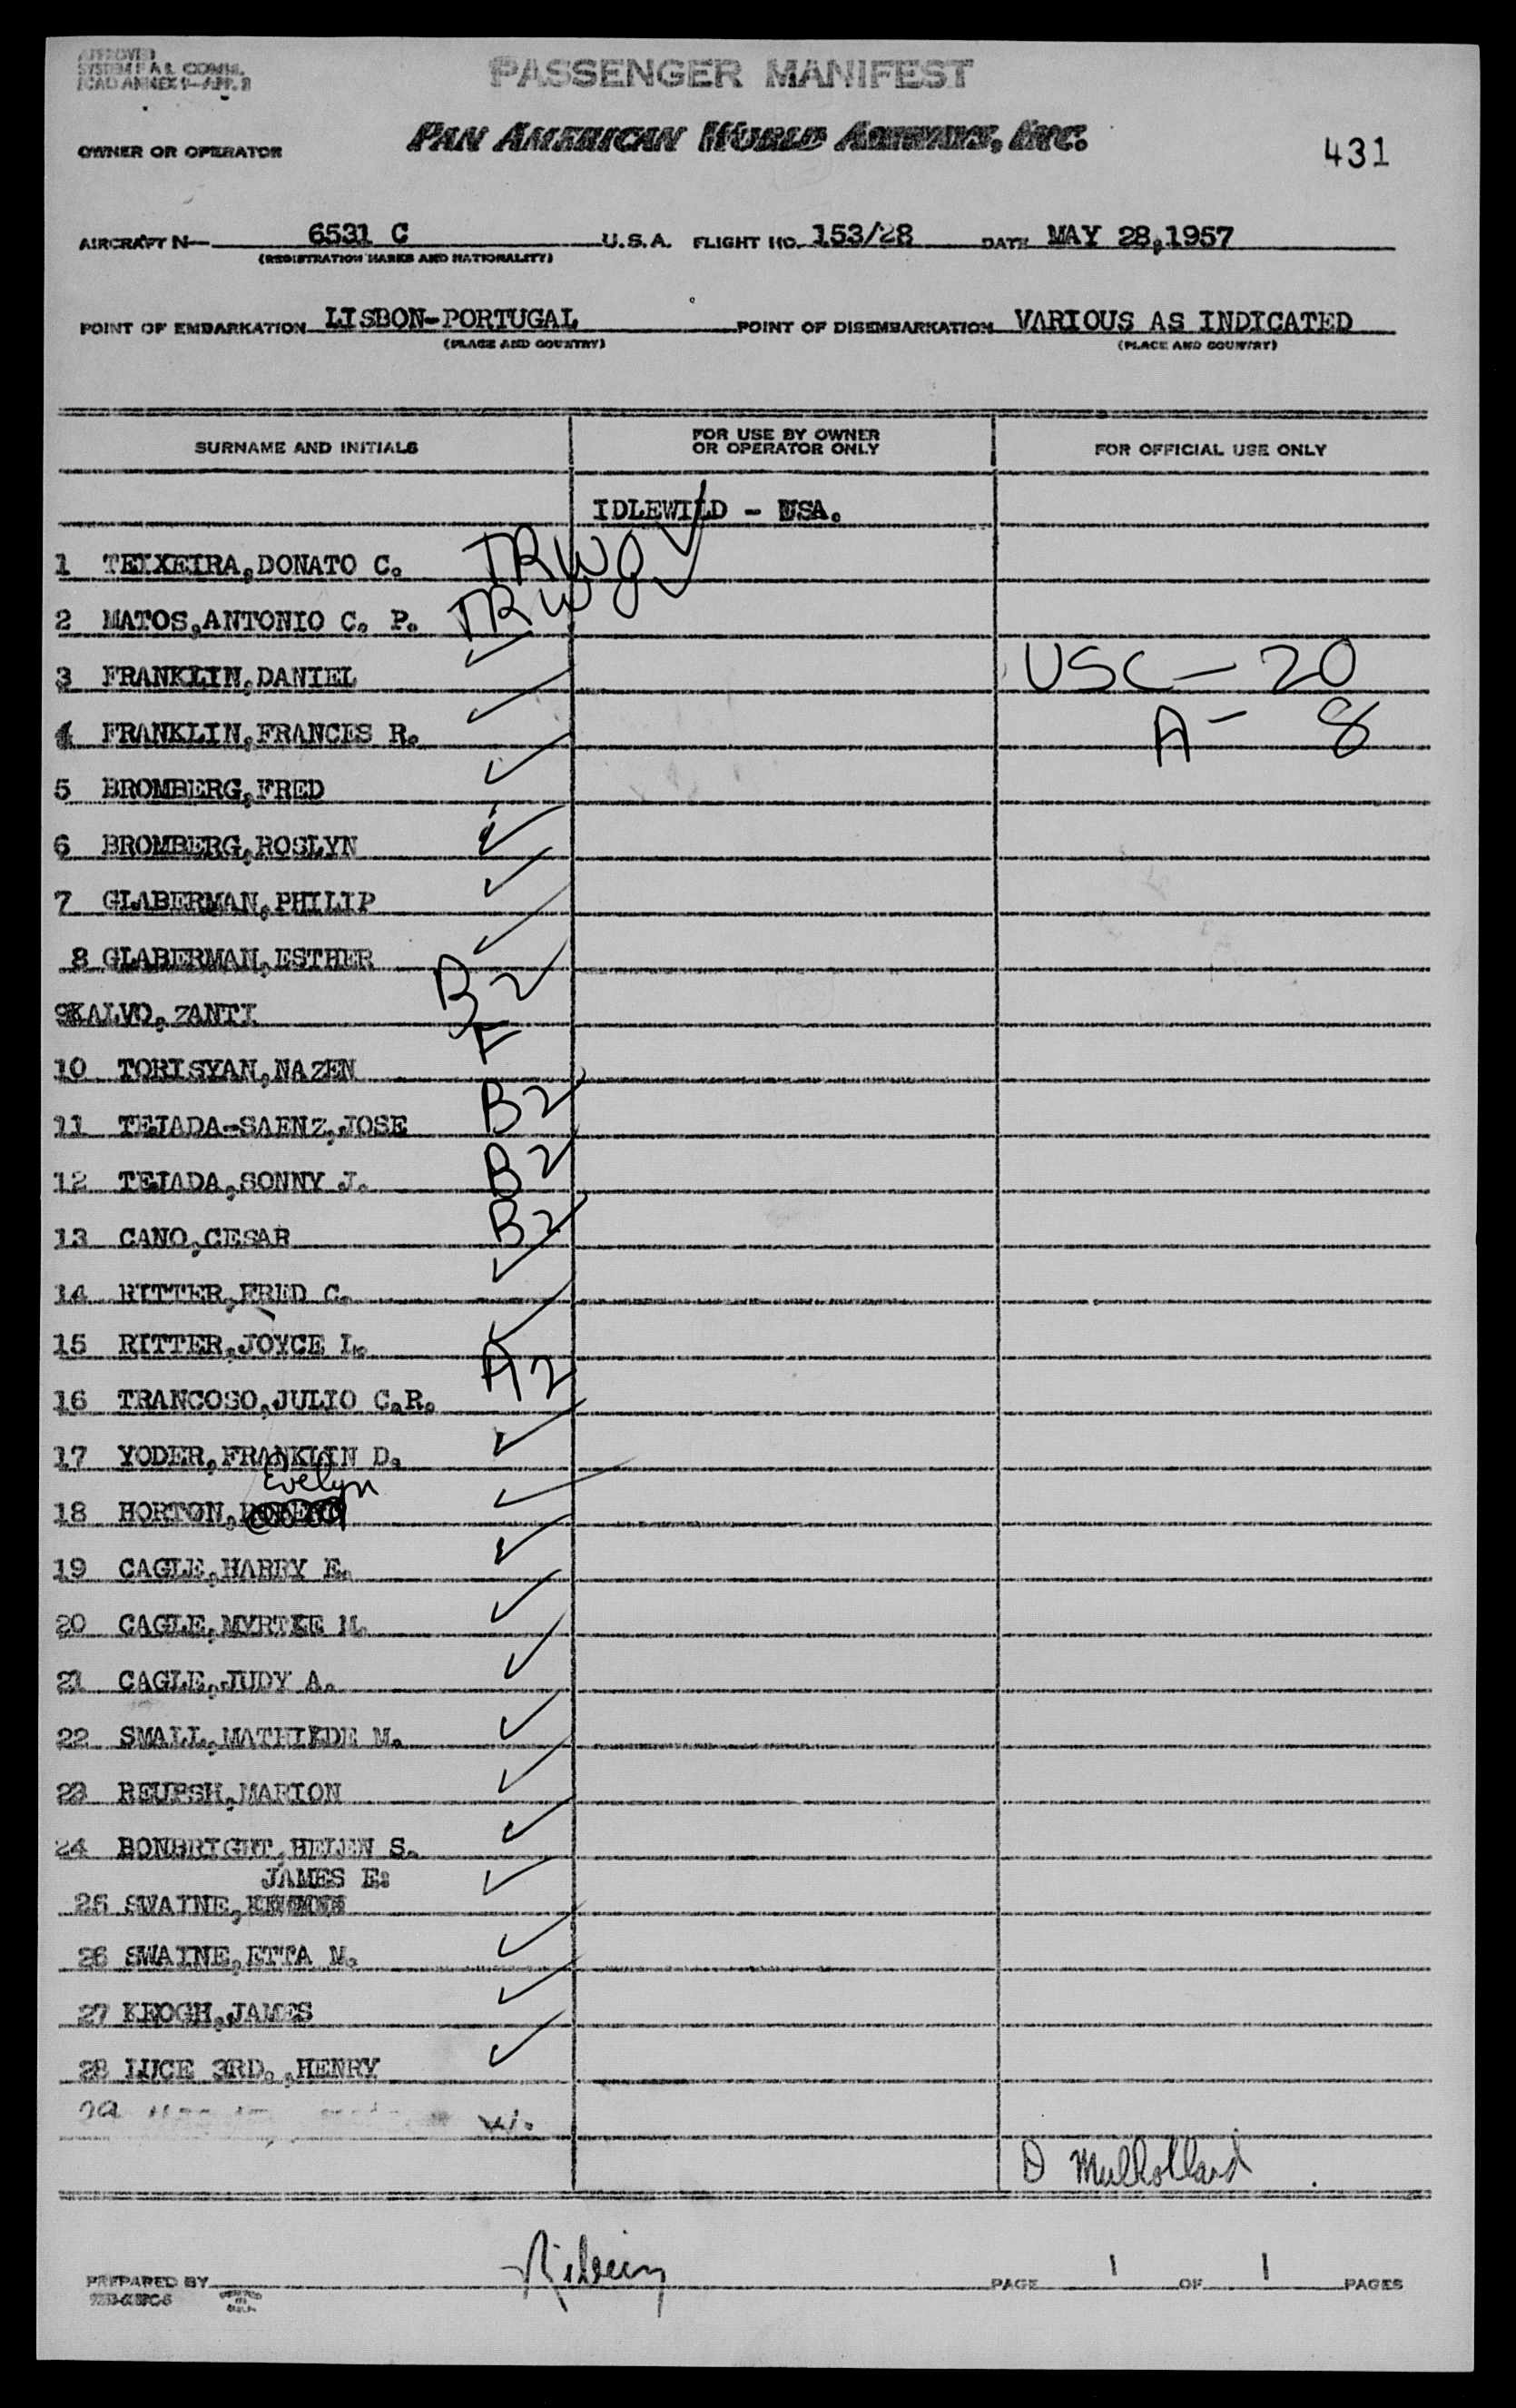 APPROVED
SYSTEM F A L COMM.
ICAO ANNEX 9-APP. 2
PASSENGER MANIFEST
OWNER OR OPERATOR
PAN AMERICAN WORLD AIRWAYS, INC.
431
AIRCRAFT N- 6531 C U.S.A. FLIGHT NO. 153/28 DATE MAY 28,1957
(REGISTRATION MARKS AND NATIONALITY)
POINT OF EMBARKATION LISBON-PORTUGAL POINT OF DISEMBARKATION VARIOUS AS INDICATED
(PLACE AND COUNTRY) (PLACE AND COUNTRY)
SURNAME AND INITIALS FOR USE BY OWNER OR OPERATOR ONLY FOR OFFICIAL USE ONLY
IDLEWILD - USA.
1 TEIXEIRA,DONATO C. TRWO
2 MATOS,ANTONIO C. P. TRWO
3 FRANKLIN,DANIEL USC - 20
4 FRANKLIN,FRANCES R. A - 8
5 BROMBERG,FRED
6 BROMBERG,ROSLYN
7 GLABERMAN,PHILIP
8 GLABERMAN,ESTHER
9 KALVO,ZANTI B2
10 TORISYAN,NAZEN F
11 TEJADA-SAENZ,JOSE B2
12 TEJADA,SONNY J. B2
13 CANO,CESAR B2
14 RITTER,FRED C.
15 RITTER,JOYCE L.
16 TRANCOSO,JULIO C.R. A2
17 YODER,FRANKLIN D.
Evelyn
18 HORTON,
19 CAGLE,HARRY E.
20 CAGLE,MYRTLE M.
21 CAGLE,JUDY A.
22 SMALL,MATHILDE M.
23 REUPSH,MARION
24 BONBRIGHT,HELEN S.
JAMES E:
25 SWAINE,
26 SWAINE,ETTA M.
27 KEOGH,JAMES
28 LUCE 3RD.,HENRY
D Mulholland
PREPARED BY PAGE 1 OF 1 PAGES